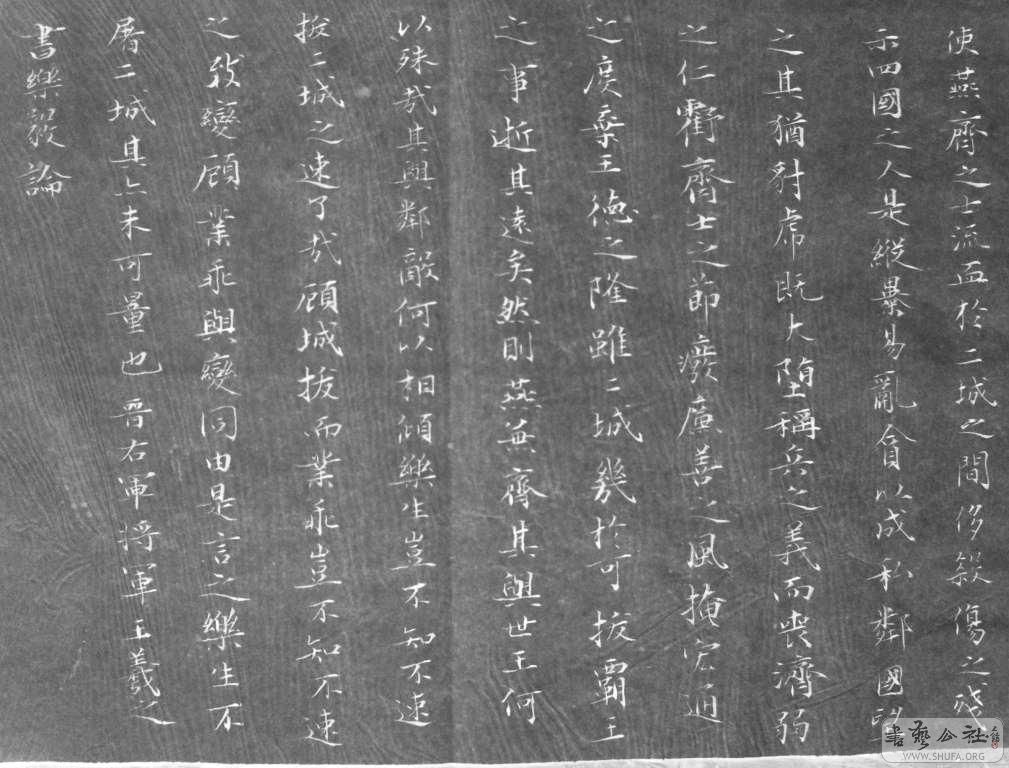 使燕齊之士流血於二城之間侈煞傷之殘
示四國之人是縱暴易亂貪以成私鄰國望
之其猶豺虎既大墮稱兵之義而喪濟弱
之仁虧齊士之節廢廉善之風掩宏通
之度棄王德之隆雖二城幾於可拔霸王
之事逝其遠矣然則燕兼齊其與世王何
以殊哉其與鄰敵何以相傾樂生豈不知不速
拔二城之速了哉顧城拔而業乖豈不知不速
之致變顧業乖與變同由是言之樂生不
屠二城其亦未可量也晉右軍將軍王羲之
書樂毅論
書藝公社
WWW.SHUFA.ORG